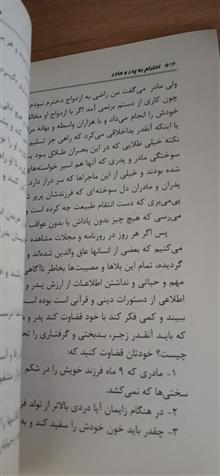 ۱۴ * احترام به پدر و مادر
ولی مادر می‌گفت من راضی به ازدواج دخترم نبودم
چون کاری از دستم برنمی آمد اگر با ازدواج او مخالف
خودش را انجام می‌داد و با هزاران واسطه و بهانه مرا
یا اینکه آنقدر بداخلاقی می‌کرد که راهی جز تسلیم
نکته خیلی طلایی که در این بحران طلاق بود
سوختگی مادر و پدری که آنها هم اسیر خواسته‌های
شده بودند و خیلی از این ماجراها که سر دراز دارد.
پدران و مادران دل سوخته‌ای که فرزندشان
پی‌می‌بری که دست انتقام طبیعت چه کرده است و
می‌رسی که هیچ چیز بدون پاداش یا بدون عواقب
پس اگر هر روز در روزنامه و مجلات مشاهده
می‌کنیم که بعضی از انسانها عاق والدین شده‌اند و
گردیده، تمام این بلاها و مصیبت‌ها بخاطر ناآگاهی
مهم و حیاتی و نداشتن اطلاعات از ارزش پدر و
اطلاعی از دستورات دینی و قرآنی است بوده است
ببیند و کمی فکر کند که با خود قضاوت کند پدر و
که باید آنقدر زجر، بدبختی و گرفتاری را
چیست؟ خودتان قضاوت کنید که:
۱- مادری که ۹ ماه فرزند خویش را در شکم
سختی‌ها که نمی‌کشد.
۲- در هنگام زایمان آیا دردی بالاتر از تولد
۳- چقدر باید خون خودش را سفید کند و به